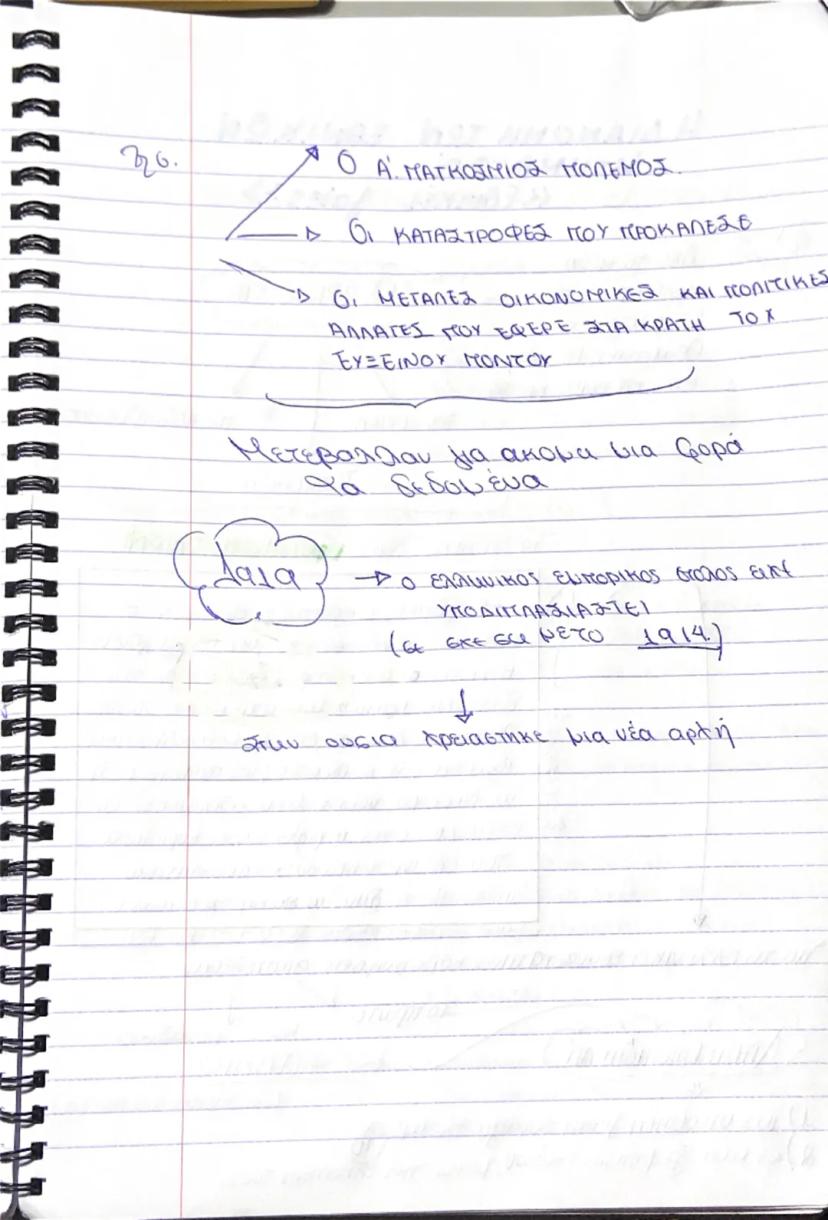 Ο Α'. ΠΑΓΚΟΣΜΙΟΣ ΠΟΛΕΜΟΣ.
Οι ΚΑΤΑΣΤΡΟΦΕΣ ΠΟΥ ΠΡΟΚΑΛΕΣΕ
Οι ΜΕΓΑΛΕΣ ΟΙΚΟΝΟΜΙΚΕΣ ΚΑΙ ΠΟΛΙΤΙΚΕΣ
ΑΛΛΑΓΕΣ ΠΟΥ ΕΦΕΡΕ ΣΤΑ ΚΡΑΤΗ ΤΟΥ
ΕΥΞΕΙΝΟΥ ΠΟΝΤΟΥ
Μετεβαλλαν για ακομα μια φορά
τα δεδομένα
→ ο ελληνικος εμπορικος στολος είχε
ΥΠΟΔΙΠΛΑΣΙΑΣΤΕΙ
(σε σχεση με το 1914.)
στην ουσια χρειαστηκε μια νέα αρχή